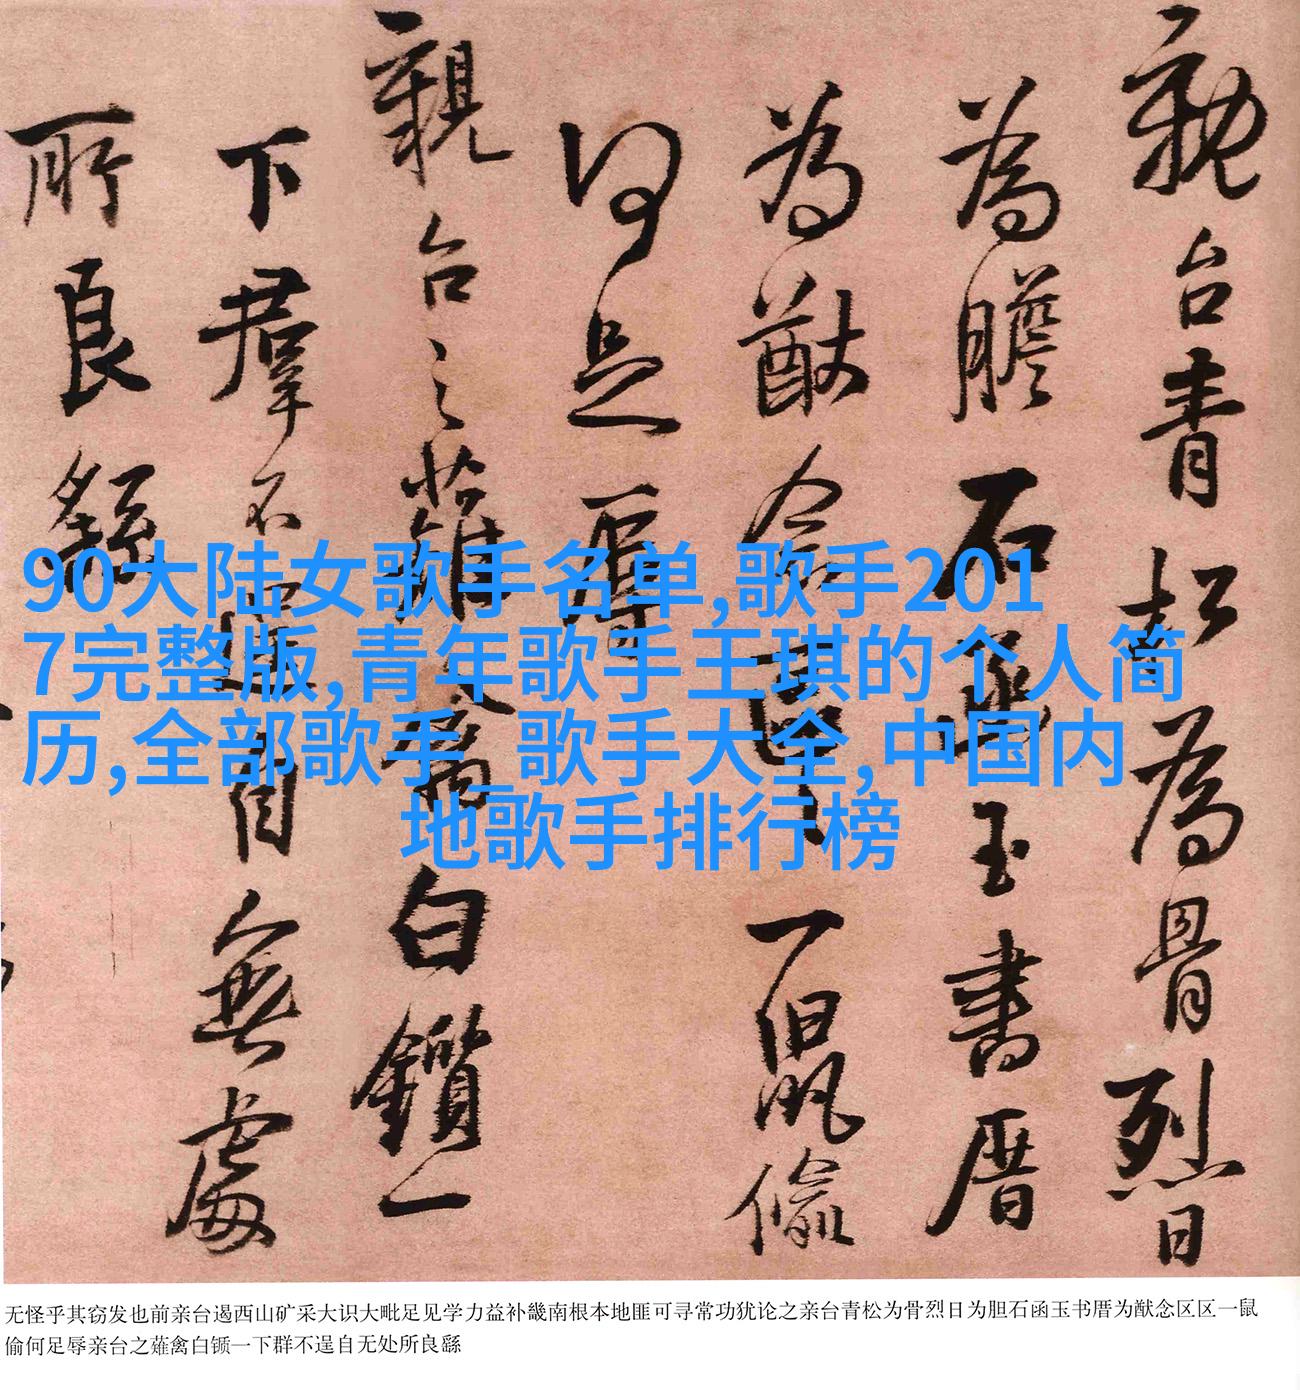 親台青松為骨烈日
為膽石函玉書厝
為猷念區區一鼠偷
何足辱
親台之薙禽白鑕一
下羣不逞自無處
所良繇
90大陆女歌手名单,歌手201
7完整版,青年歌手王琪的个人简
历,全部歌手_歌手大全,中国内
地歌手排行榜
无怪乎其窃发也前亲台遏西山矿采大识大毗足见学力益补畿南根本地匪可寻常功犹论之亲台青松为骨烈日为胆石函玉书厝为猷念区区一鼠
偷何足辱亲台之薙禽白锧一下群不逞自无处所良繇